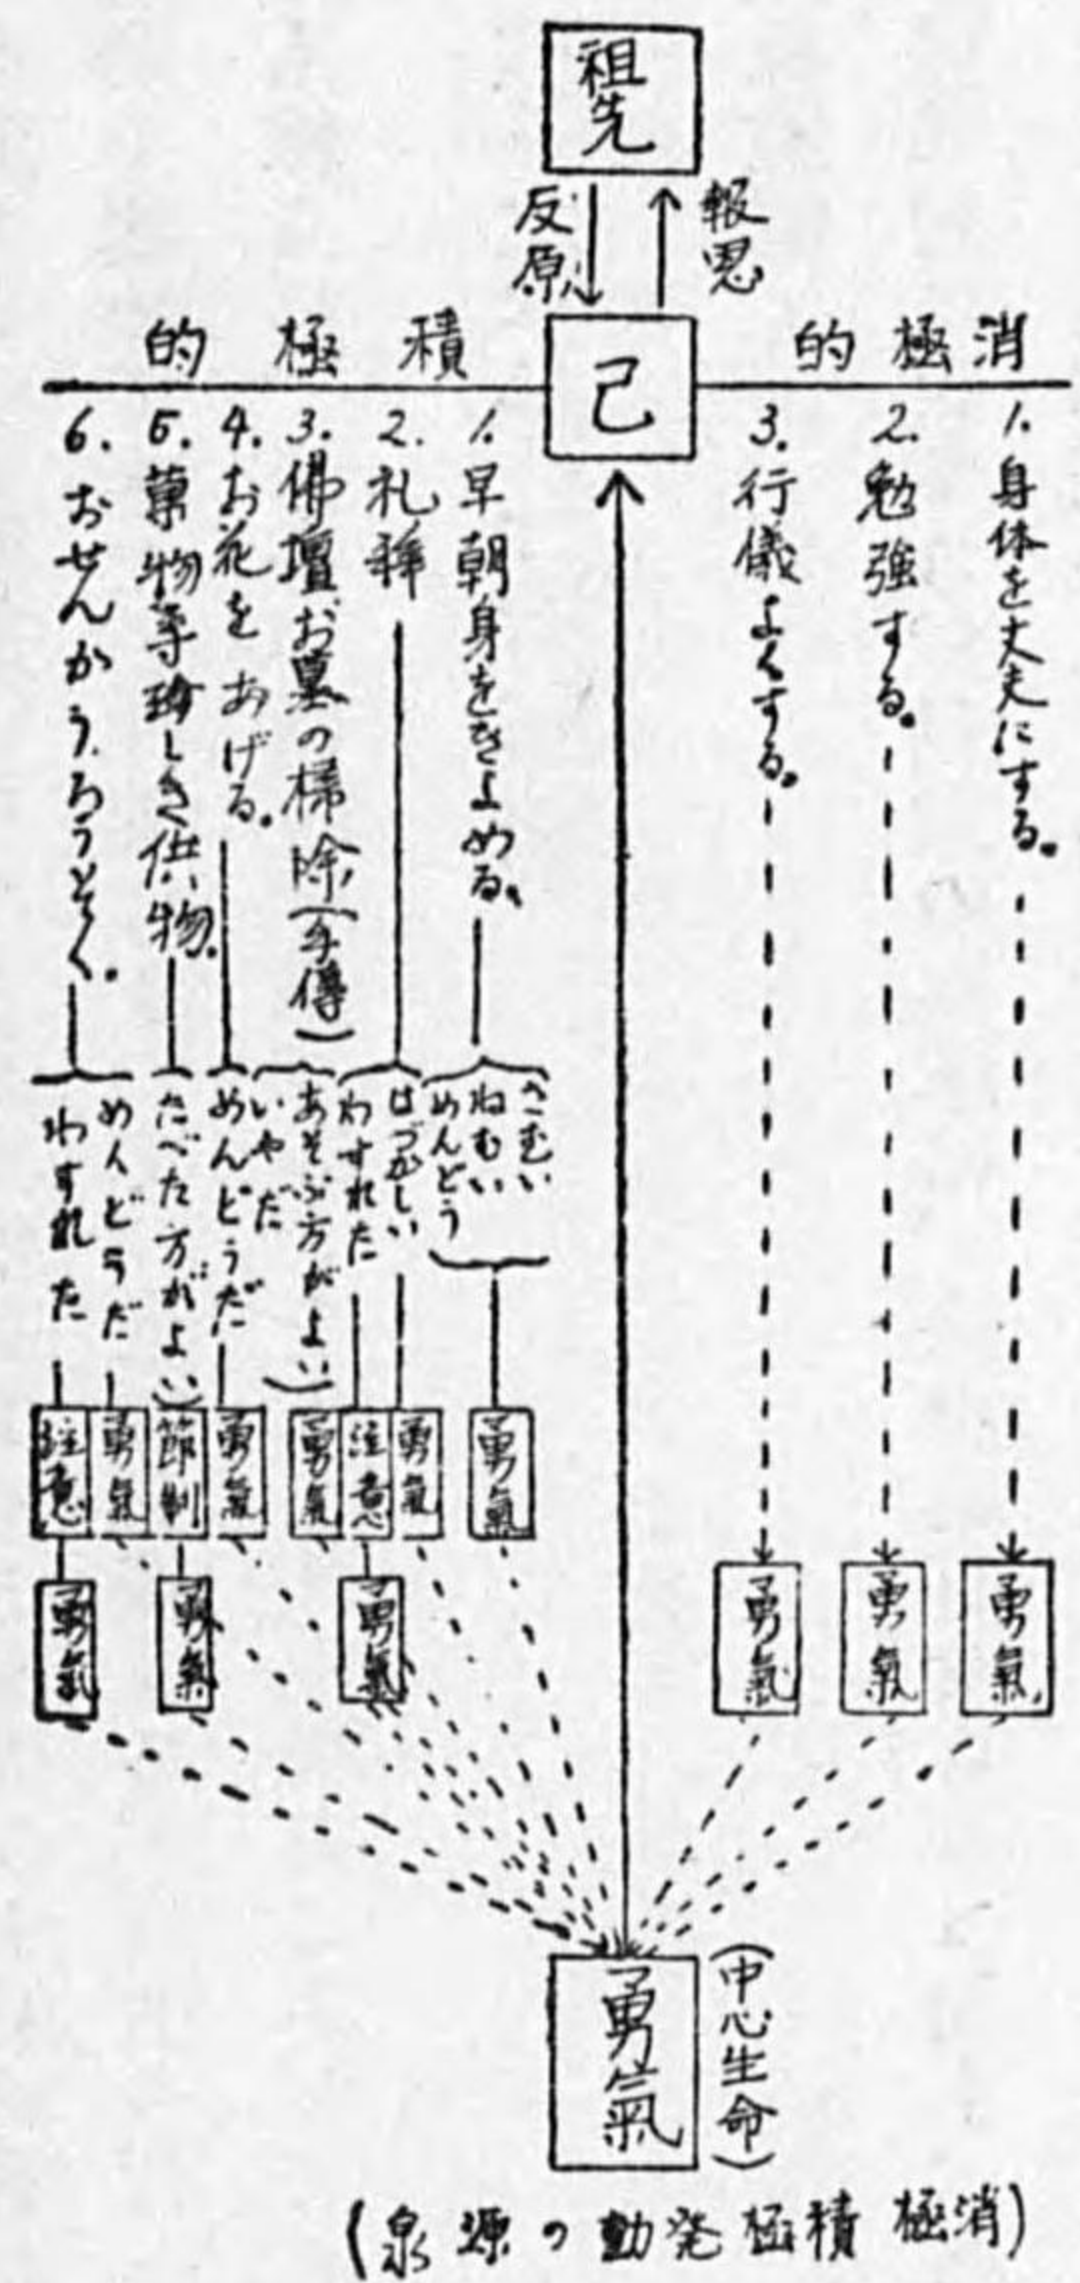 祖先
報恩
反原
己
消極的
1. 身体を丈夫にする。
2. 勉強する。
3. 行儀よくする。
積極的
1. 早朝身をきよめる。
2. 礼拝
3. 佛壇お墓の掃除(手傳)
4. お花をあげる。
5. 菓物等珍しき供物。
6. おせんかう、ろうそく。
さむい
ねむい
めんどう
はづかしい
わすれた
あそぶ方がよい
いやだ
めんどうだ
たべた方がよい
めんどうだ
わすれた
勇氣
勇氣
勇氣
勇氣
勇氣
注意
勇氣
勇氣
節制
勇氣
注意
勇氣
勇氣
勇氣
勇氣
(中心生命)
(消極積極発動の源泉)